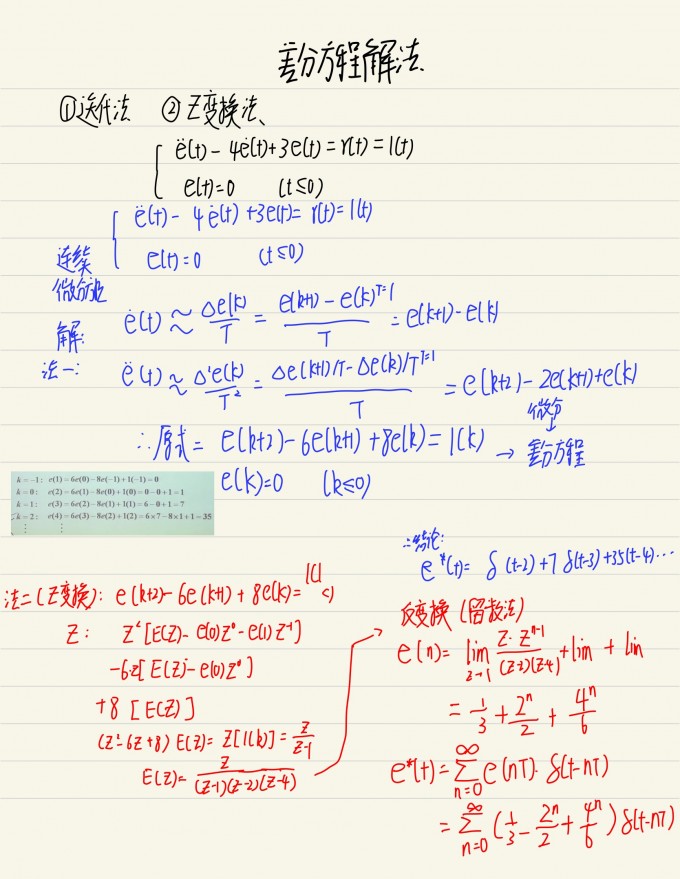 差分方程解法
①迭代法 ②Z变换法、
ë(t) - 4ė(t)+3e(t) = r(t) = 1(t)
e(t)=0 (t≤0)
ë(t) - 4ė(t) +3e(t)= r(t)=1(t)
连续 e(t)=0 (t≤0)
微分方程
解: ė(t) ≈ Δe(k)/T = (e(k+1) - e(k))/T T=1 = e(k+1) - e(k)
法一: ë(t) ≈ Δ²e(k)/T² = (Δe(k+1)/T - Δe(k)/T)/T T=1 = e(k+2) - 2e(k+1)+e(k)
微分
↓
∴原式= e(k+2) - 6e(k+1) + 8e(k) = 1(k) → 差分方程
e(k)=0 (k≤0)
k = -1: e(1) = 6e(0) - 8e(-1) + 1(-1) = 0
k = 0: e(2) = 6e(1) - 8e(0) + 1(0) = 0 - 0 + 1 = 1
k = 1: e(3) = 6e(2) - 8e(1) + 1(1) = 6 - 0 + 1 = 7
k = 2: e(4) = 6e(3) - 8e(2) + 1(2) = 6×7 - 8×1 + 1 = 35
⋮ ⋮
∴结论:
e*(t)= δ(t-2)+7δ(t-3)+35(t-4)...
法二(Z变换): e(k+2) - 6e(k+1) + 8e(k) = 1(k)
Z: Z²[E(Z) - e(0)Z⁰ - e(1)Z⁻¹]
-6z[E(Z) - e(0)Z⁰]
+8 [E(Z)]
(Z²-6Z+8) E(Z) = Z[1(k)] = Z/(Z-1)
E(Z)= Z/((Z-1)(Z-2)(Z-4))
反变换(留数法)
e(n)= lim z→1 Z·Z^(n-1)/((Z-2)(Z-4)) + lim + lim
= 1/3 + 2^n/2 + 4^n/6
e*(t) = ∑ n=0 ∞ e(nT)·δ(t-nT)
= ∑ n=0 ∞ (1/3 - 2^n/2 + 4^n/6) δ(t-nT)